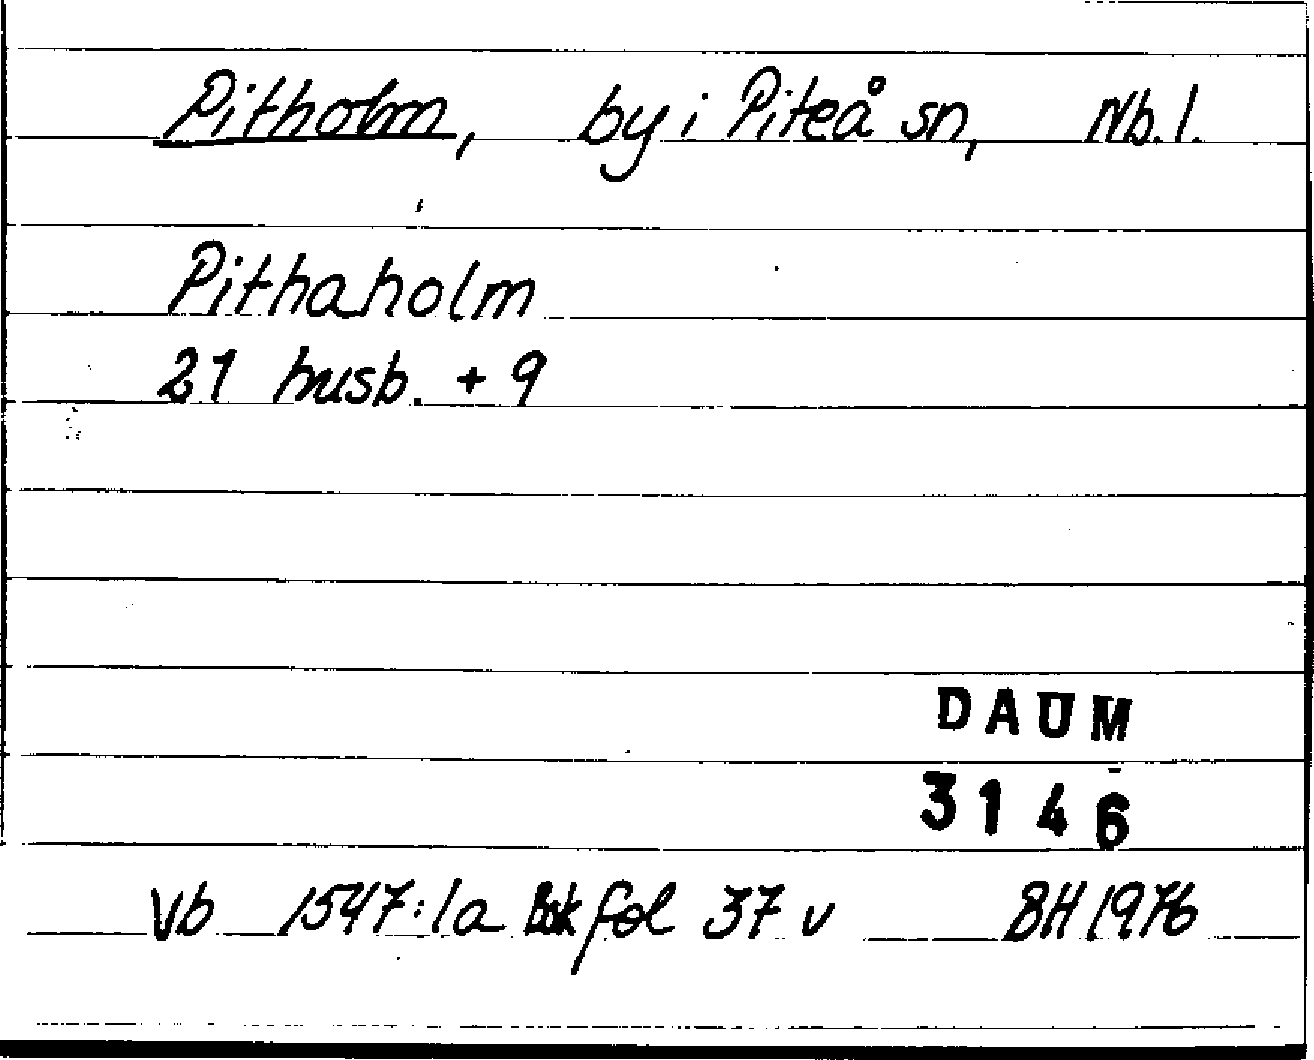 Pitholm, by i Piteå sn, Nb. l.
Pithaholm
21 husb. + 9
DAUM
3146
Vb 1547:1a Bsk fol 37 v BH 1976